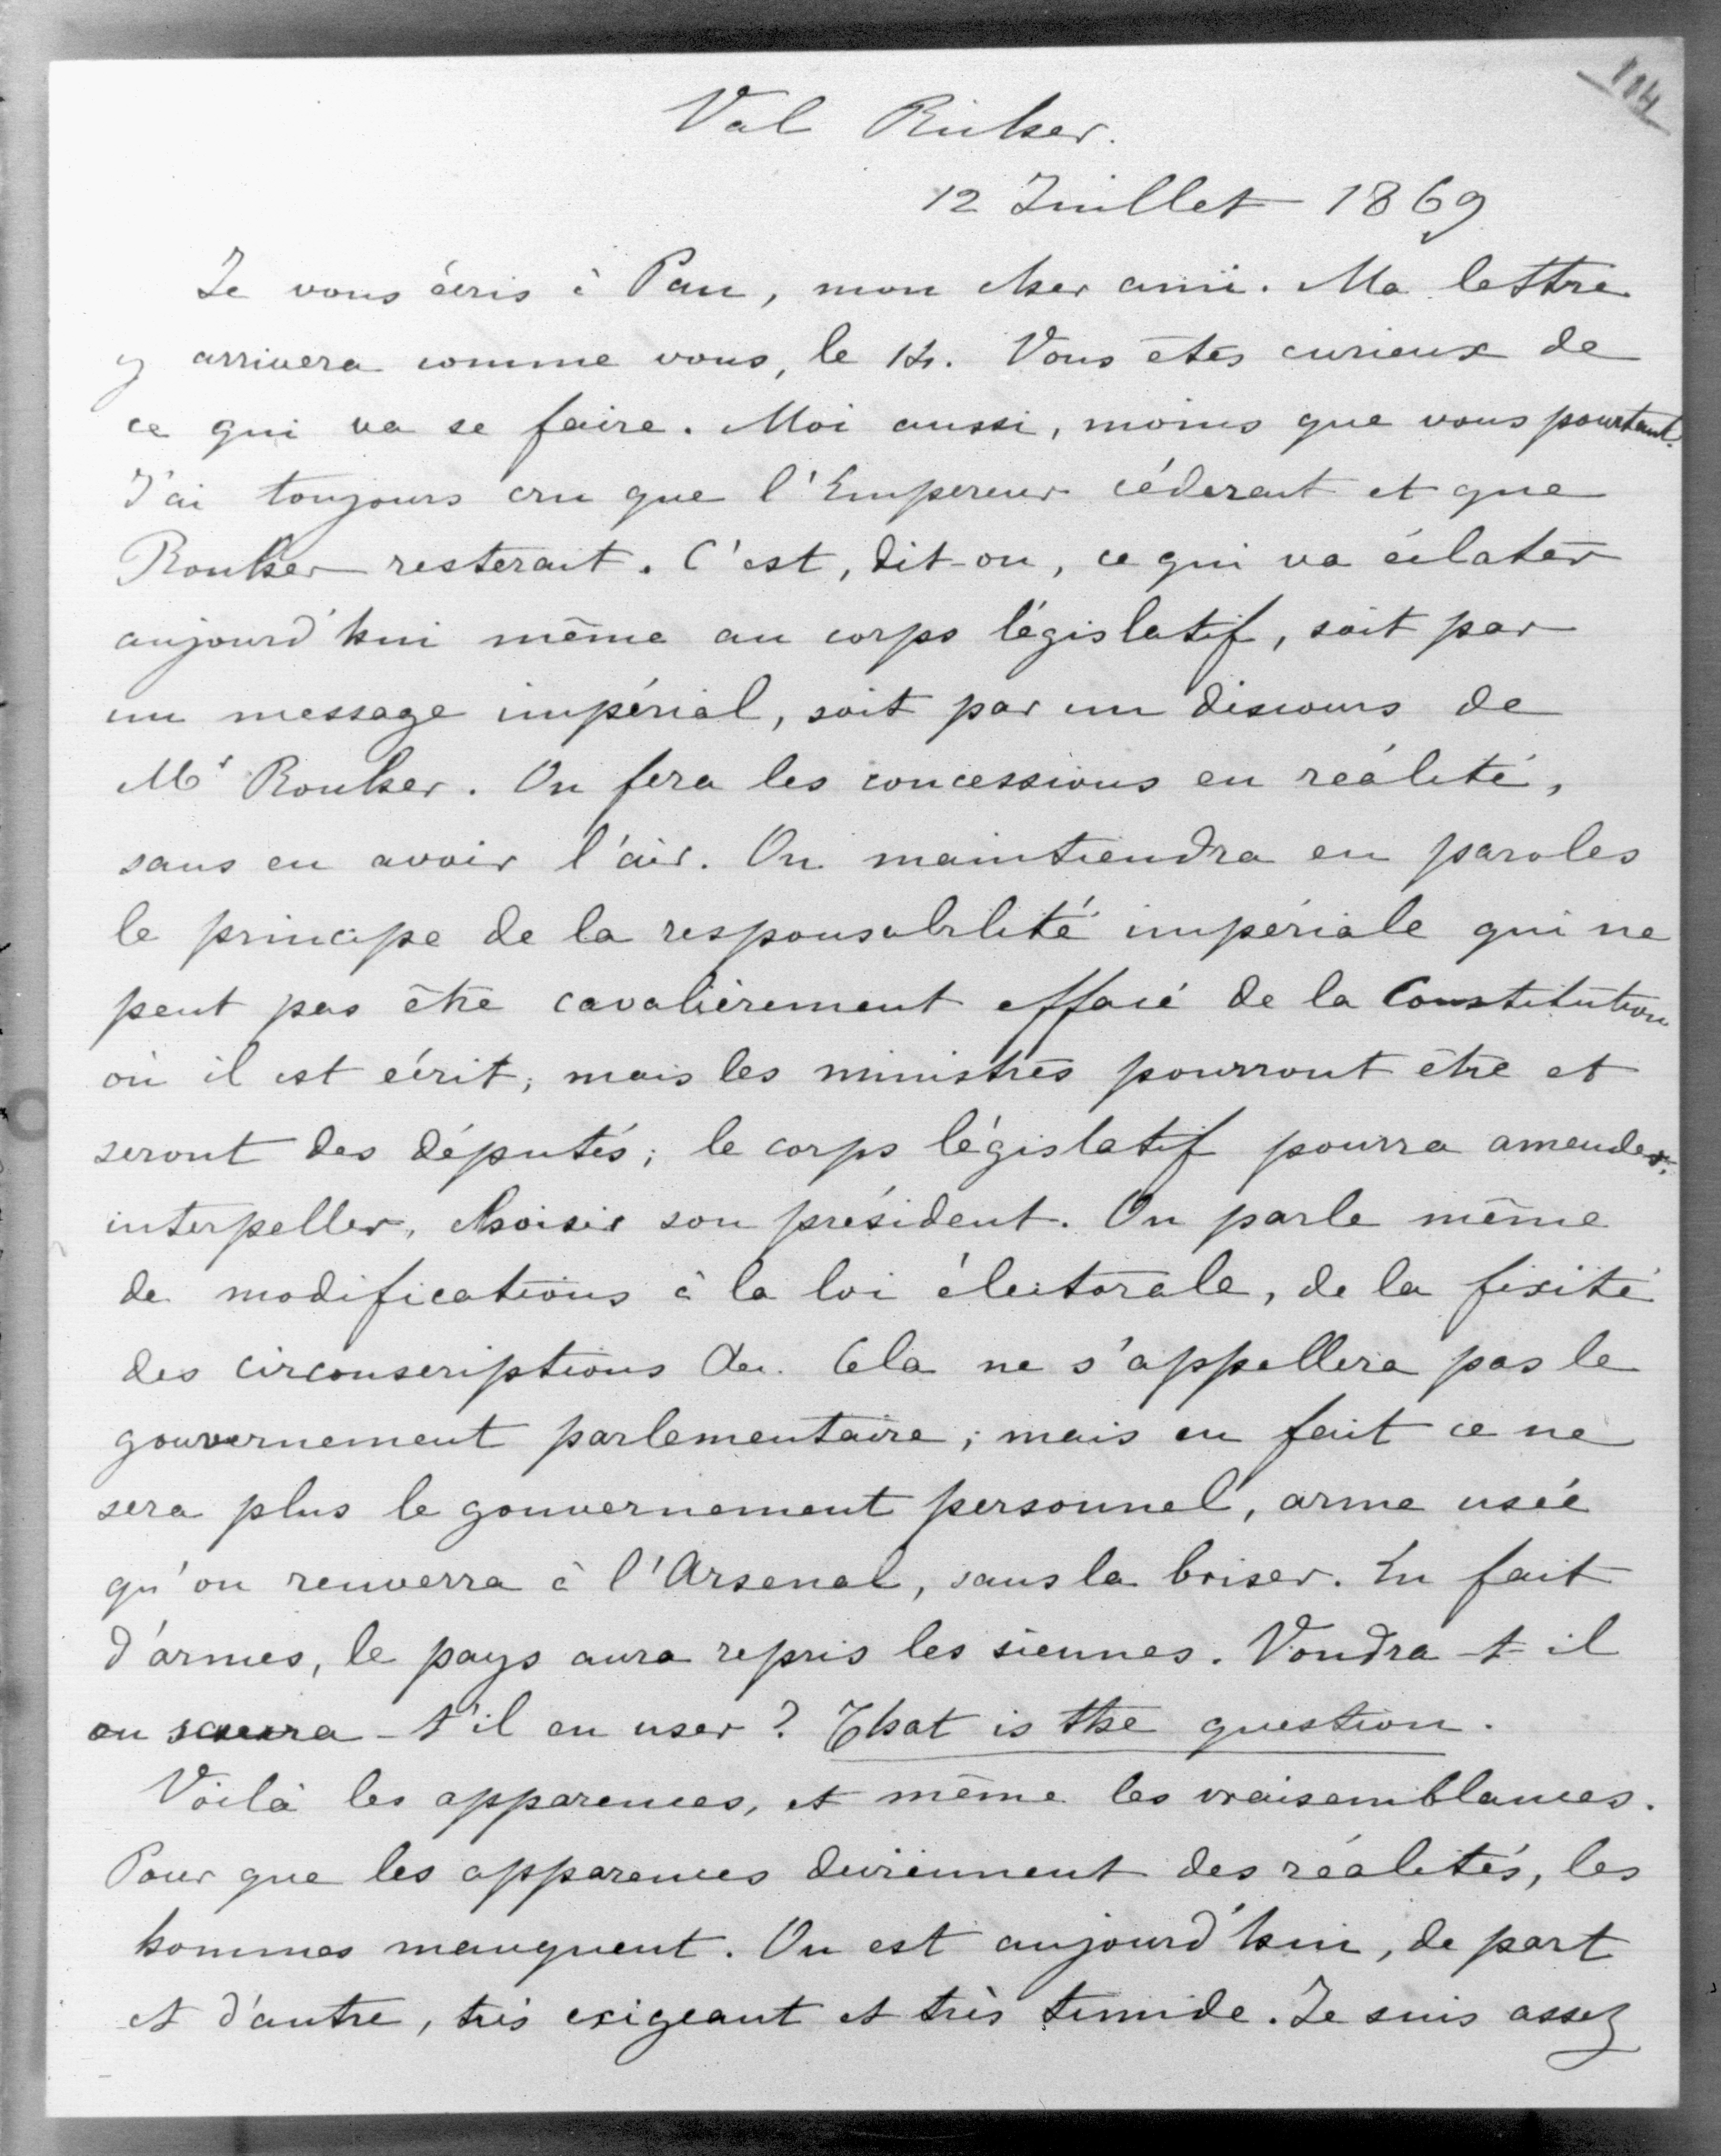 114
Val Richer.
12 Juillet 1869
Je vous écris à Pau, mon cher ami. Ma lettre
y arrivera comme vous, le 14. Vous êtes curieux de
ce qui va se faire. Moi aussi, moins que vous pourtant.
J'ai toujours cru que l'Empereur céderait et que
Rouher resterait. C'est, dit-on, ce qui va éclater
aujourd'hui même au corps législatif, soit par
un message impérial, soit par un discours de
Mr Rouher. On fera les concessions en réalité,
sans en avoir l'air. On maintiendra en paroles
le principe de la responsabilité impériale qui ne
peut pas être cavalièrement effacé de la Constitution
où il est écrit; mais les ministres pourront être et
seront des députés; le corps législatif pourra amender,
interpeller, choisir son président. On parle même
de modifications à la loi électorale, de la fixité
des circonscriptions &c. Cela ne s'appellera pas le
gouvernement parlementaire; mais en fait ce ne
sera plus le gouvernement personnel, arme usée
qu'on renverra à l'Arsenal, sans la briser. En fait
d'armes, le pays aura repris les siennes. Voudra-t-il
ou saura-t'il en user? That is the question.
Voilà les apparences, et même les vraisemblances.
Pour que les apparences deviennent des réalités, les
hommes manquent. On est aujourd'hui, de part
et d'autre, très exigeant et très timide. Je suis assez